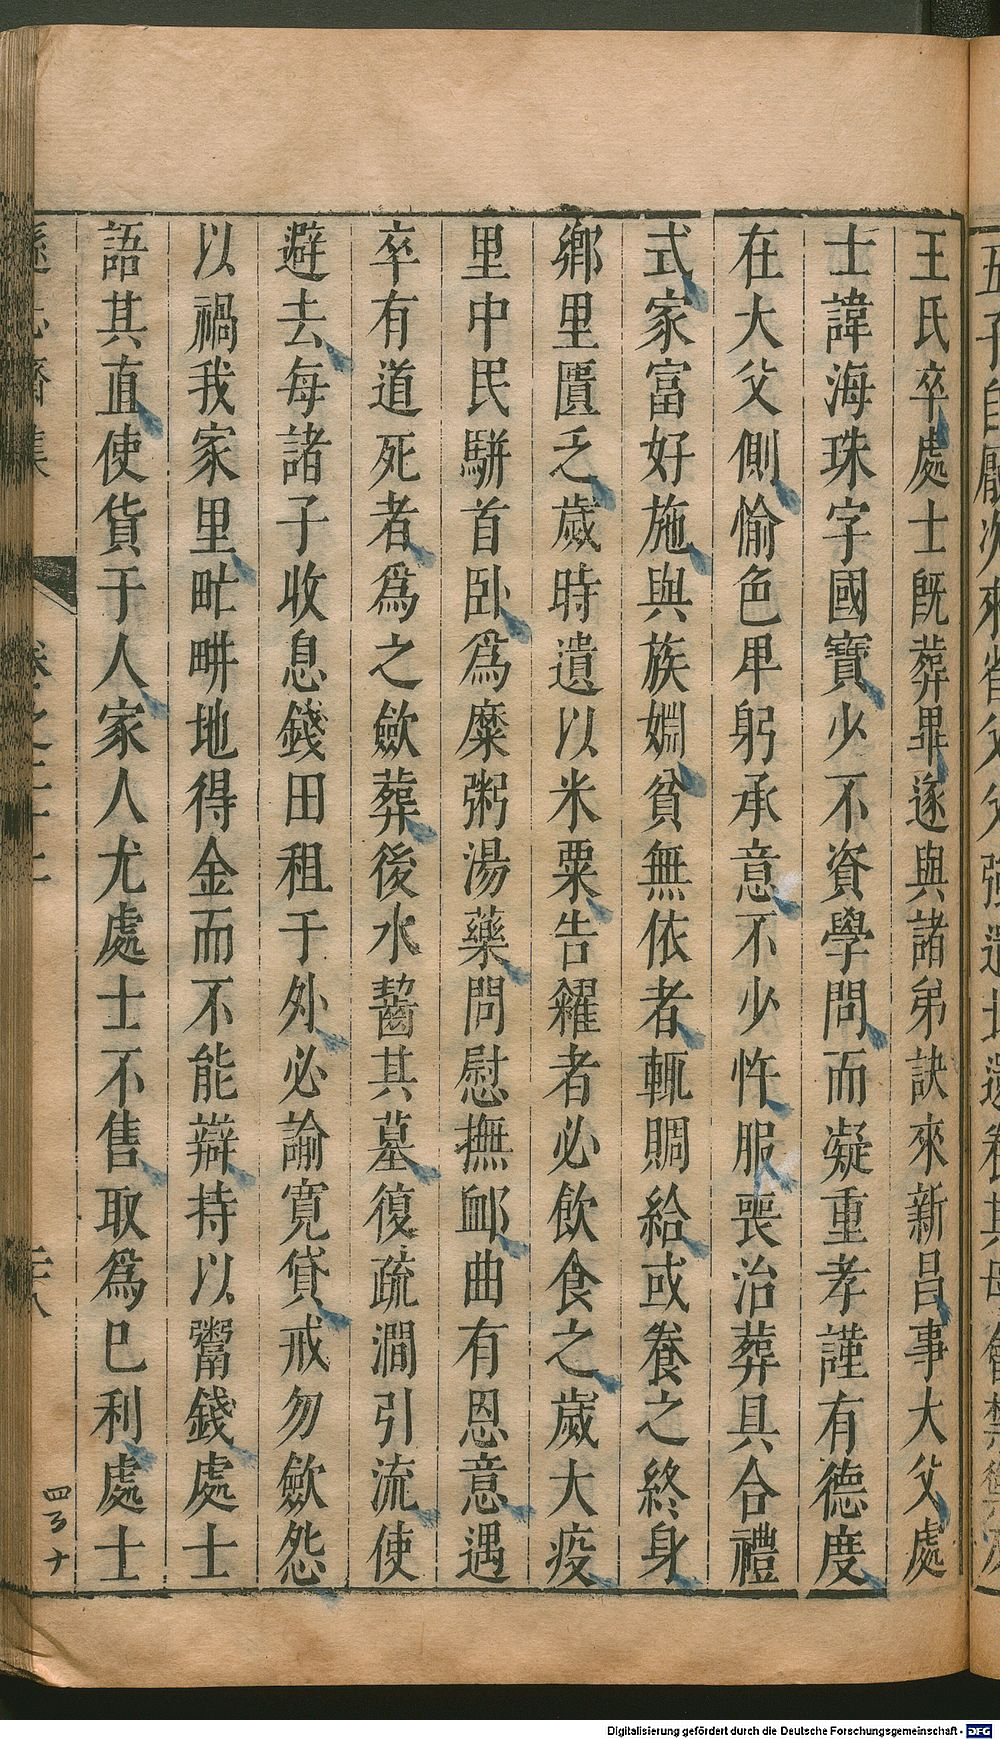 王氏卒處士既葬畢遂與諸弟訣來新昌事大父處
士諱海珠字國寶少不資學問而凝重孝謹有德度
在大父側愉色卑躬承意不少忤服喪治葬具合禮
式家富好施與族婣貧無依者輒賙給或養之終身
鄉里匱乏歲時遺以米粟告糴者必飲食之歲大疫
里中民駢首臥爲糜粥湯藥問慰撫䘏曲有恩意遇
卒有道死者爲之斂葬後水齧其墓復疏澗引流使
避去每諸子收息錢田租于外必諭寬貸戒勿斂怨
以禍我家里甿畊地得金而不能辯持以鬻錢處士
語其直使貨于人家人尤處士不售取爲己利處士
遜志齋集
卷之二十二
二十八
Digitalisierung gefördert durch die Deutsche Forschungsgemeinschaft - DFG